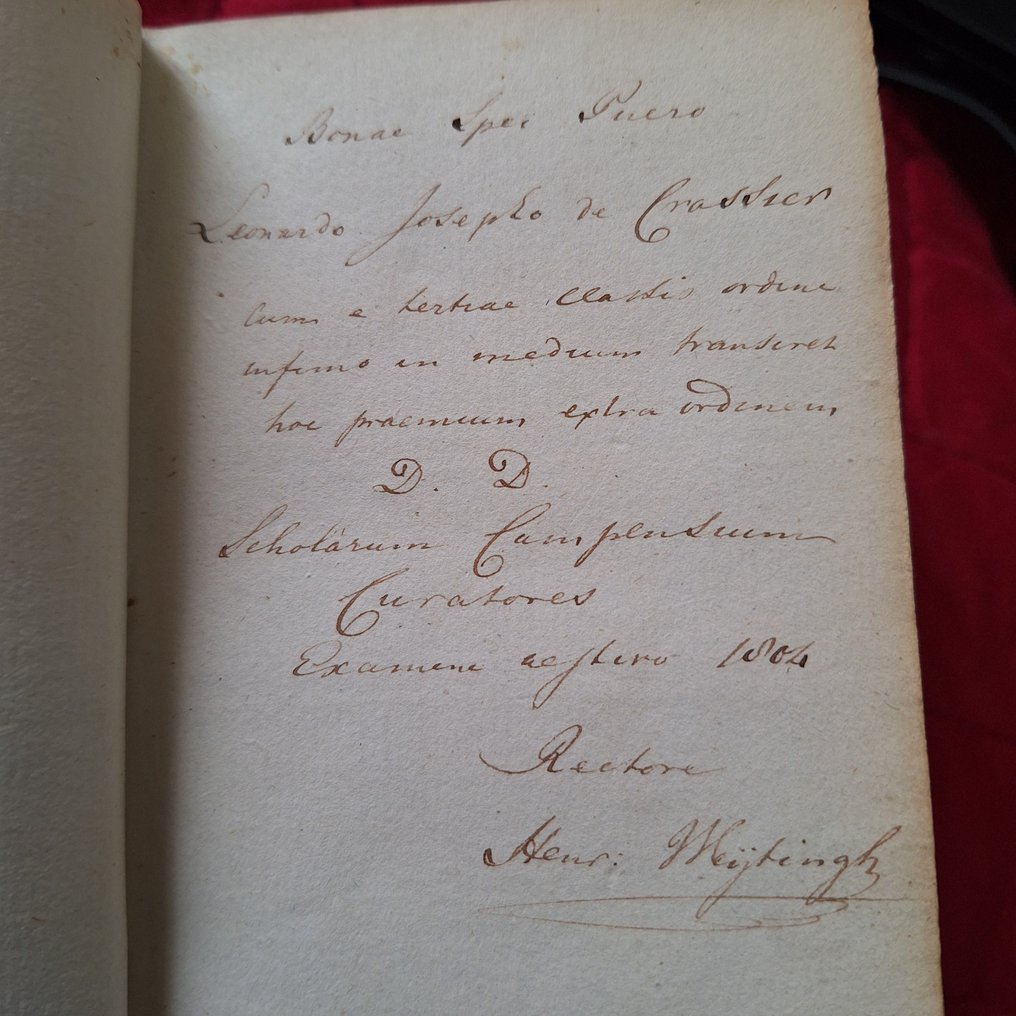 Bonae Spei Puero
Leonardo Josepho de Crassier
cum e tertiae classis ordine
infimo in medium transiret
hoc praemium extra ordinem
D. D.
Scholarum Campensium
Curatores
Examine aestivo 1804
Rectore
Henr: Weÿtingh